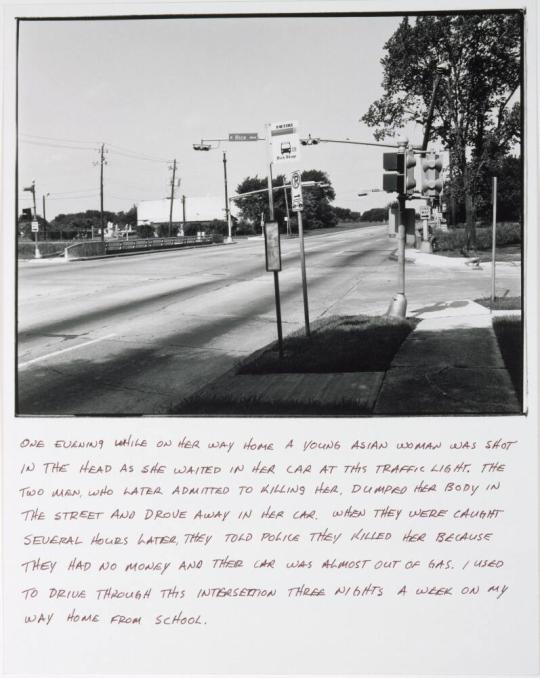 Rice
Bus Stop
ONE EVENING WHILE ON HER WAY HOME A YOUNG ASIAN WOMAN WAS SHOT
IN THE HEAD AS SHE WAITED IN HER CAR AT THIS TRAFFIC LIGHT. THE
TWO MEN, WHO LATER ADMITTED TO KILLING HER, DUMPED HER BODY IN
THE STREET AND DROVE AWAY IN HER CAR. WHEN THEY WERE CAUGHT
SEVERAL HOURS LATER, THEY TOLD POLICE THEY KILLED HER BECAUSE
THEY HAD NO MONEY AND THER CAR WAS ALMOST OUT OF GAS. I USED
TO DRIVE THROUGH THIS INTERSETION THREE NIGHTS A WEEK ON MY
WAY HOME FROM SCHOOL.